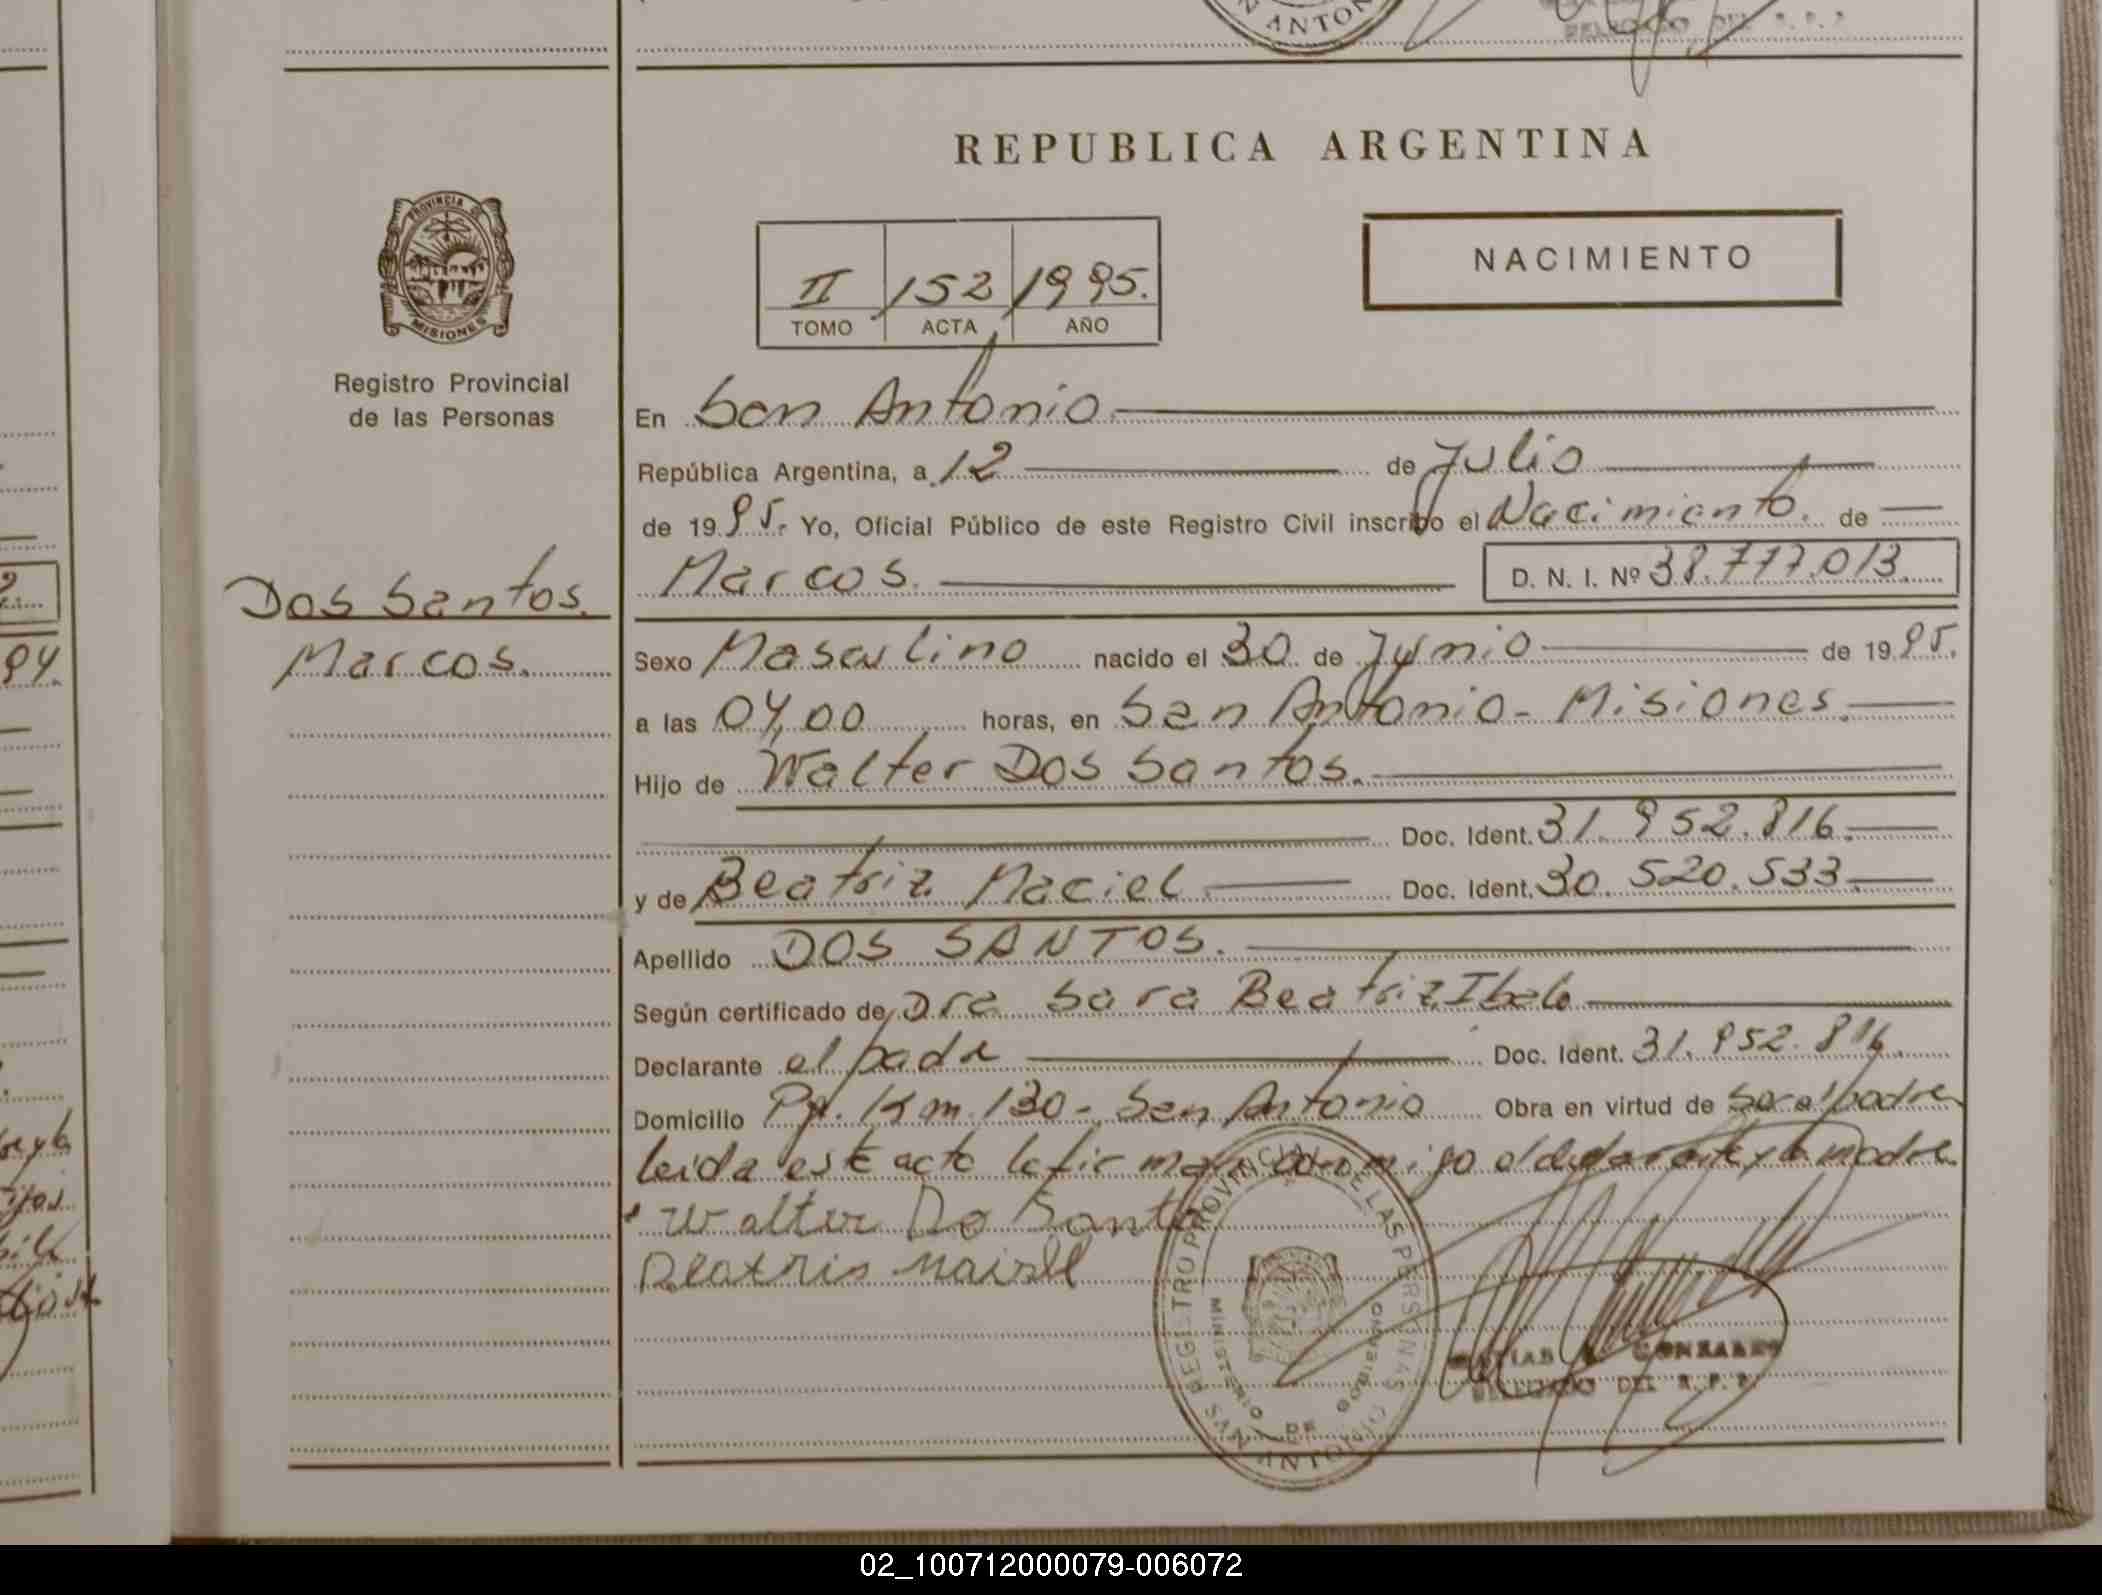 N ANTON
DELEGADO DEL R. P. P.
REPUBLICA ARGENTINA
PROVINCIA DE
MISIONES
II 152 1995.
TOMO ACTA AÑO
NACIMIENTO
Registro Provincial
de las Personas
En San Antonio.
República Argentina, a 12 de Julio
de 1995. Yo, Oficial Público de este Registro Civil inscribo el Nacimiento. de
Marcos. D. N. I. Nº 38.777.013.
Dos Santos.
Marcos.
Sexo Masculino nacido el 30 de Junio de 1995.
a las 04,00 horas, en San Antonio - Misiones.
Hijo de Walter Dos Santos.
Doc. Ident. 31.952.816.
y de Beatriz Maciel Doc. Ident. 30.520.533.
Apellido DOS SANTOS.
Según certificado de Dra Sara Beatriz
Declarante el padre Doc. Ident. 31.952.816.
Domicilio Pp. Km. 130 - San Antonio Obra en virtud de ser el padre
leida este acta la firman conmigo el declarante y la madre
Walter Do Santo
Beatris
REGISTRO PROVINCIAL DE LAS PERSONAS
MINISTERIO DE GOBIERNO
SAN ANTONIO
GONZALEZ
DELEGADO DEL R. P. P.
02_100712000079-006072